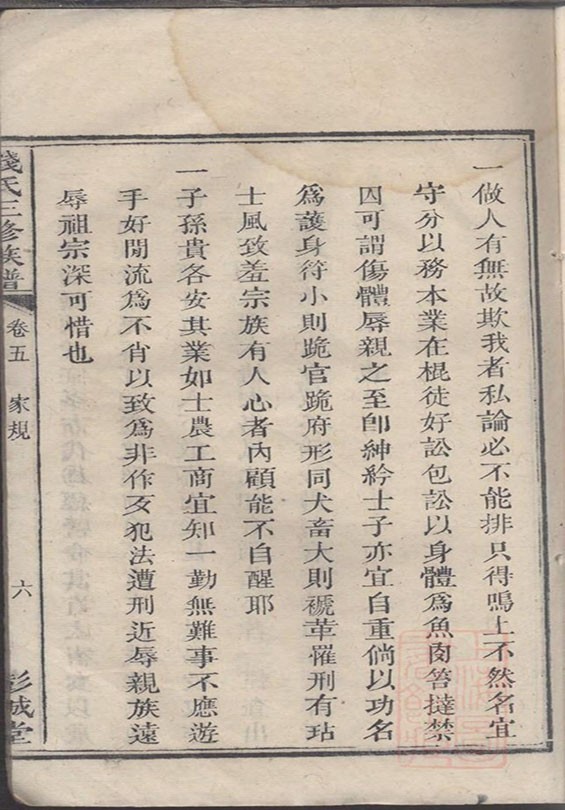 一做人有無故欺我者私論必不能排只得鳴上不然各宜
守分以務本業在棍徒好訟包訟以身體爲魚肉笞撻禁
囚可謂傷體辱親之至即紳衿士子亦宜自重倘以功名
爲護身符小則跪官跪府形同犬畜大則褫革罹刑有玷
士風致羞宗族有人心者內顧能不自醒耶
一子孫貴各安其業如士農工商宜知一勤無難事不應遊
手好閒流爲不肖以致爲非作歹犯法遭刑近辱親族遠
辱祖宗深可惜也
錢氏三修族譜
卷五
家規
六
彭城堂